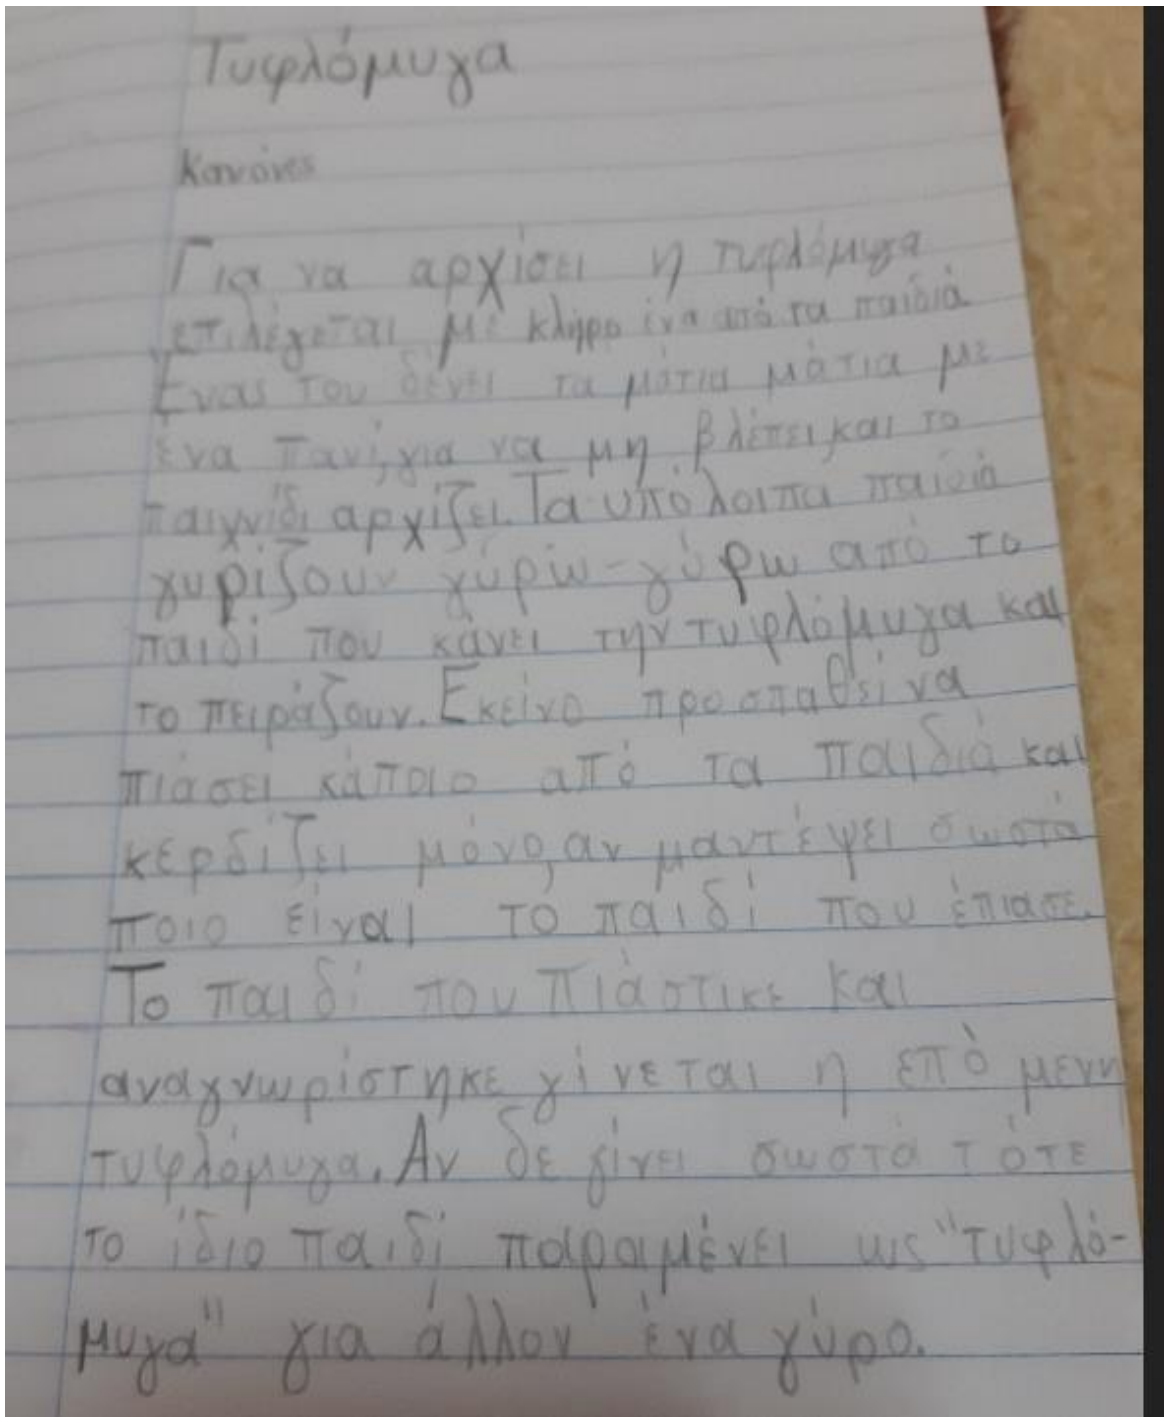 Τυφλόμυγα
Κανόνες
Για να αρχίσει η τυφλόμυγα
επιλέγεται με κλήρο ένα από τα παιδιά
Ένας του δένει τα μάτια μάτια με
ένα πανί, για να μη βλέπει και το
παιχνίδι αρχίζει. Τα υπόλοιπα παιδιά
γυρίζουν γύρω-γύρω από το
παιδί που κάνει την τυφλόμυγα και
το πειράζουν. Εκείνο προσπαθεί να
πιάσει κάποιο από τα παιδιά και
κερδίζει μόνο, αν μαντέψει σωστά
ποιο είναι το παιδί που έπιασε.
Το παιδί που πιάστικε και
αναγνωρίστηκε γίνεται η επόμενη
τυφλόμυγα. Αν δε γίνει σωστά τότε
το ίδιο παιδί παραμένει ως "τυφλό-
μυγα" για άλλον ένα γύρο.